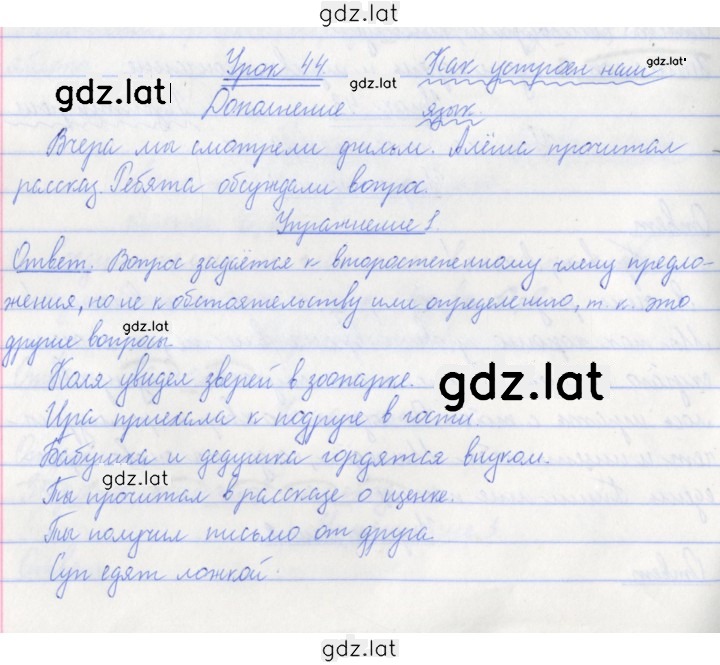 gdz.lat
Урок 44. Как устроен наш gdz.lat
gdz.lat gdz.lat
Дополнение язык.
Вчера мы смотрели фильм. Алёша прочитал
рассказ. Ребята обсуждали вопрос.
Упражнение 1.
Ответ. Вопрос задаётся к второстепенному члену предло-
жения, но не к обстоятельству или определению, т. к. это
другие вопросы. gdz.lat
Коля увидел зверей в зоопарке. gdz.lat
Ира приехала к подруге в гости.
Бабушка и дедушка гордятся внуком.
gdz.lat
Ты прочитал в рассказе о щенке.
Ты получил письмо от друга.
Суп едят ложкой.
gdz.lat